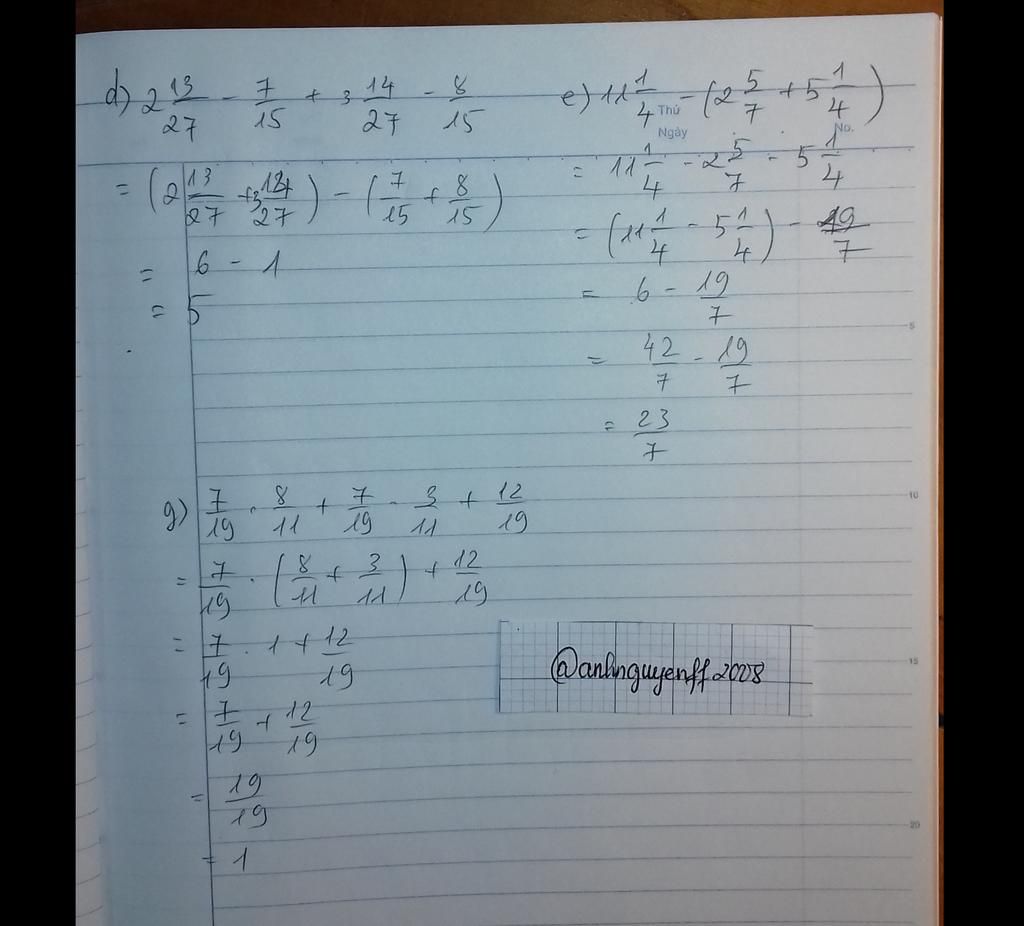 d) 2 13/27 - 7/15 + 3 14/27 - 8/15
= (2 13/27 + 3 14/27) - (7/15 + 8/15)
= 6 - 1
= 5
e) 11 1/4 - (2 5/7 + 5 1/4)
Thứ
Ngày
No.
= 11 1/4 - 2 5/7 - 5 1/4
= (11 1/4 - 5 1/4) - 19/7
= 6 - 19/7
= 42/7 - 19/7
= 23/7
5
10
g) 7/19 . 8/11 + 7/19 . 3/11 + 12/19
= 7/19 . (8/11 + 3/11) + 12/19
= 7/19 . 1 + 12/19
15
@anhnguyenff2008
= 7/19 + 12/19
= 19/19
20
= 1